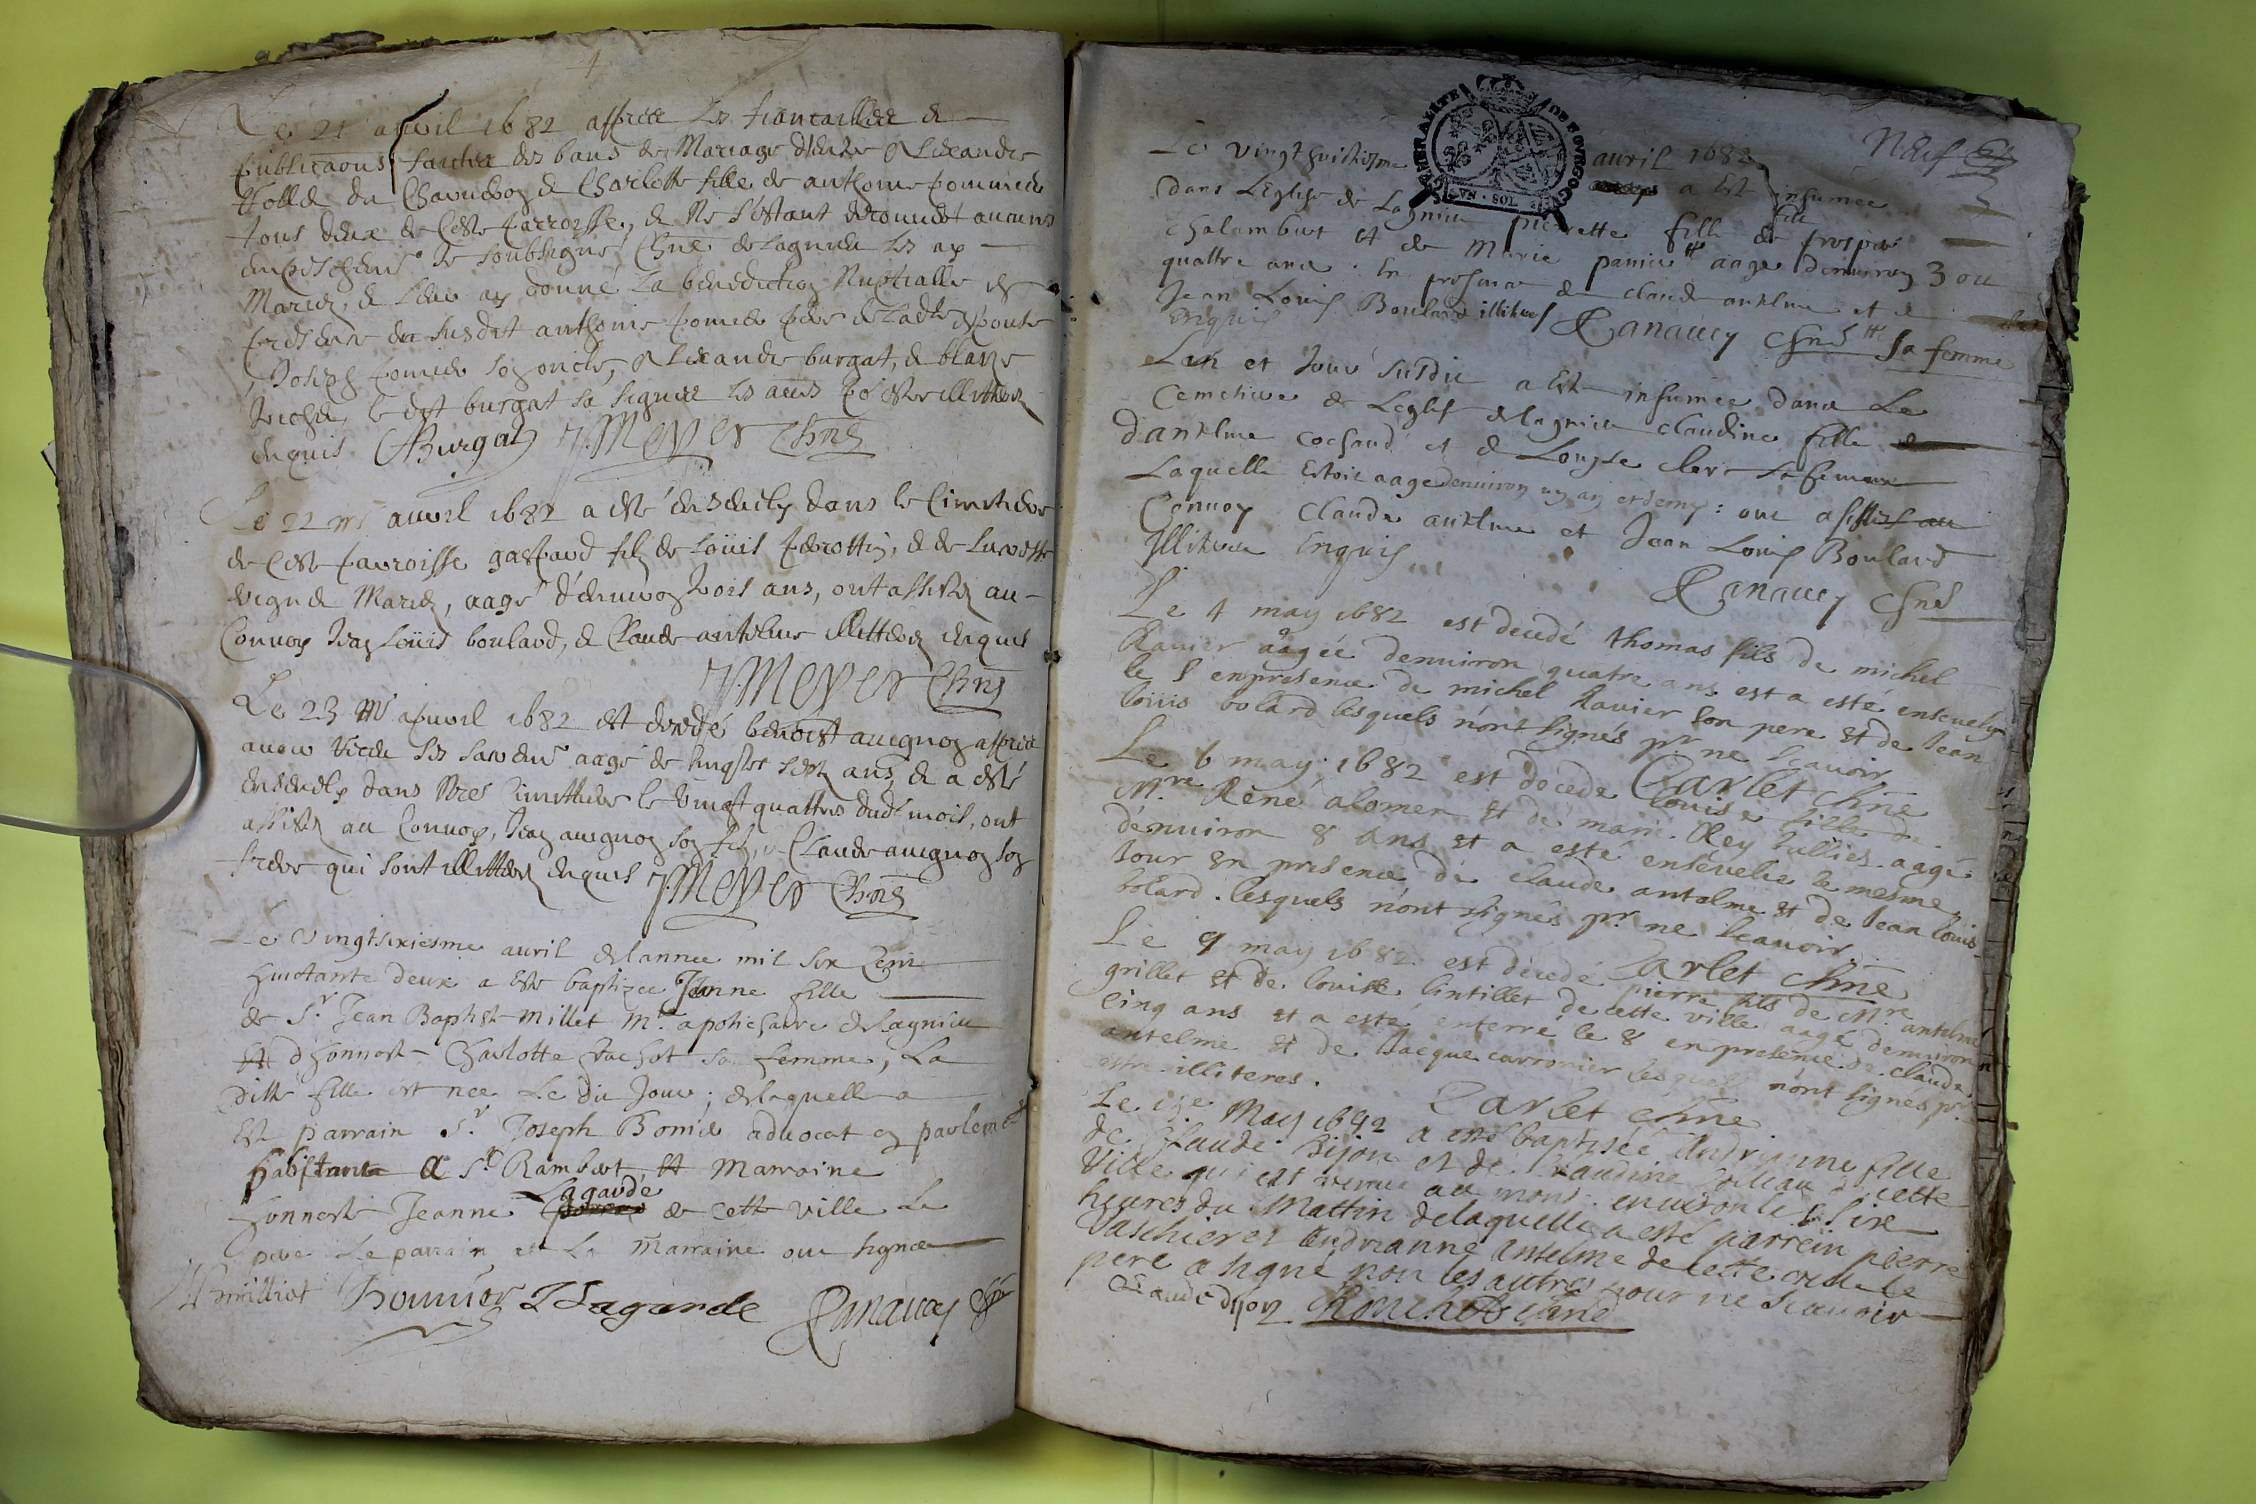 Le 21 apvril 1682 apprez les fiancailles &
publicaons faictes des bans de Mariage d'entre Alexandre
& Charlotte fille de anthoine pommier
tous deux de ceste parroisse, & ne s'estant descouvert aucuns
je soubsigné Chne de Lagnieu les ay
Mariez, & leur ay donné la benediction Nuptialle en
presence du susdit anthoine pomier pere de ladte espouse
Joseph pomier son oncle, Alexandre burgat, & blaise
le dit burgat sa signez les aues po. estre illitteres
enquis ABurgat J.Meyer Chne
Le 22 me avvril 1682 a esté ensevely dans le Cimetiere
de ceste parroisse gaspard filz de Loüis perrottin, & de
Mariez, aagé d'environ trois ans, ont assistez au
Convoy Jean Loüis boulard, & Claude antelme illitterez enquis
J.Meyer Chne
Le 23 me apvril 1682 est decedé benoist avignon apprez
avoir receu ses sacremts aagé de sept ans, & a esté
ensevely dans Nre Cimetiere le vingt quattre dudt mois, ont
assistez au Convoy, Jean avignon son filz, & Claude avignon son
frere qui sont illitterez enquis J.Meyer Chne
Le vingtsixiesme avril de lannee mil six cent
huictante deux a esté baptizee Jeanne fille
de Sr. Jean Baptiste millet Mre. apothicaire de Lagnieu
et d'honneste Charlotte Jachot sa femme, La
ditte fille est nee Le du Jour; de laquelle a
Est parrain Sr. Joseph Bonier advocat en parlement
habitant a St Rambert et Marraine
honneste Jeanne Lagarde de cette ville Le
pere Le parrain et La Marraine ont signes
Bonnier J Lagarde Ranaucy Chne
Neuf
Le vingthuictiesme avril 1682 a Est inhumée
dans LEglise de Lagnieu pierrette fille de prospere
Chalembert et de Marie aagee denviron 3 ou
quattre ans. En presence de claude antelme et de
Jean Louis Boulard illiteres Ranaucy Chne sa femme
Enquis
Lan et Jour susdit a Est inhumée dans Le
Cemetiere de Leglise de Lagnieu claudine fille
dantelme cochard et de Louyse clerc sa femme
Laquelle Estoit aage denviron un an et demy: ont assistes au
Convoy Claude antelme et Jean Louis Boulard
Illiteres Enquis
Ranaucy Chne
Le 4 may 1682 est decedé thomas fils de michel
Ravier aagéé denviron quatre ans est a esté ensevely
le 5 en presence de michel Ravier son pere et de Jean
louis bolard lesquels n'ont signés pr ne scavoir
Carlet Chne
Le 6 may 1682 est decede louise fille de
Mre René alomen et de marie Rey aagé
denviron 8 ans et a esté ensevelie le mesme
Jour en presence de claude antelme et de Jean louis
bolard. lesquels n'ont signés pr. ne scavoir.
Carlet Chne
Le 9 may 1682 est decedé pierre fils de Mre antelme
grillet et de louise lintillet de cette ville aagé denviron
cinq ans et a esté enterré le 8 en presence de claude
antelme et de Jacque carronier lesquels n'ont signés pr
estre illiteres.
Carlet Chne
Le May 1682 a esté baptisée Andrianne fille
de Claude Dijon et de Claudine de cette
ville qui est venue au monde environ les six
heures du Mattin de laquelle a esté parrein pierre
Vaschier et Andrianne antelme de cette ville le
pere a signé non les autres pour ne scavoir
Claude dijon Chne